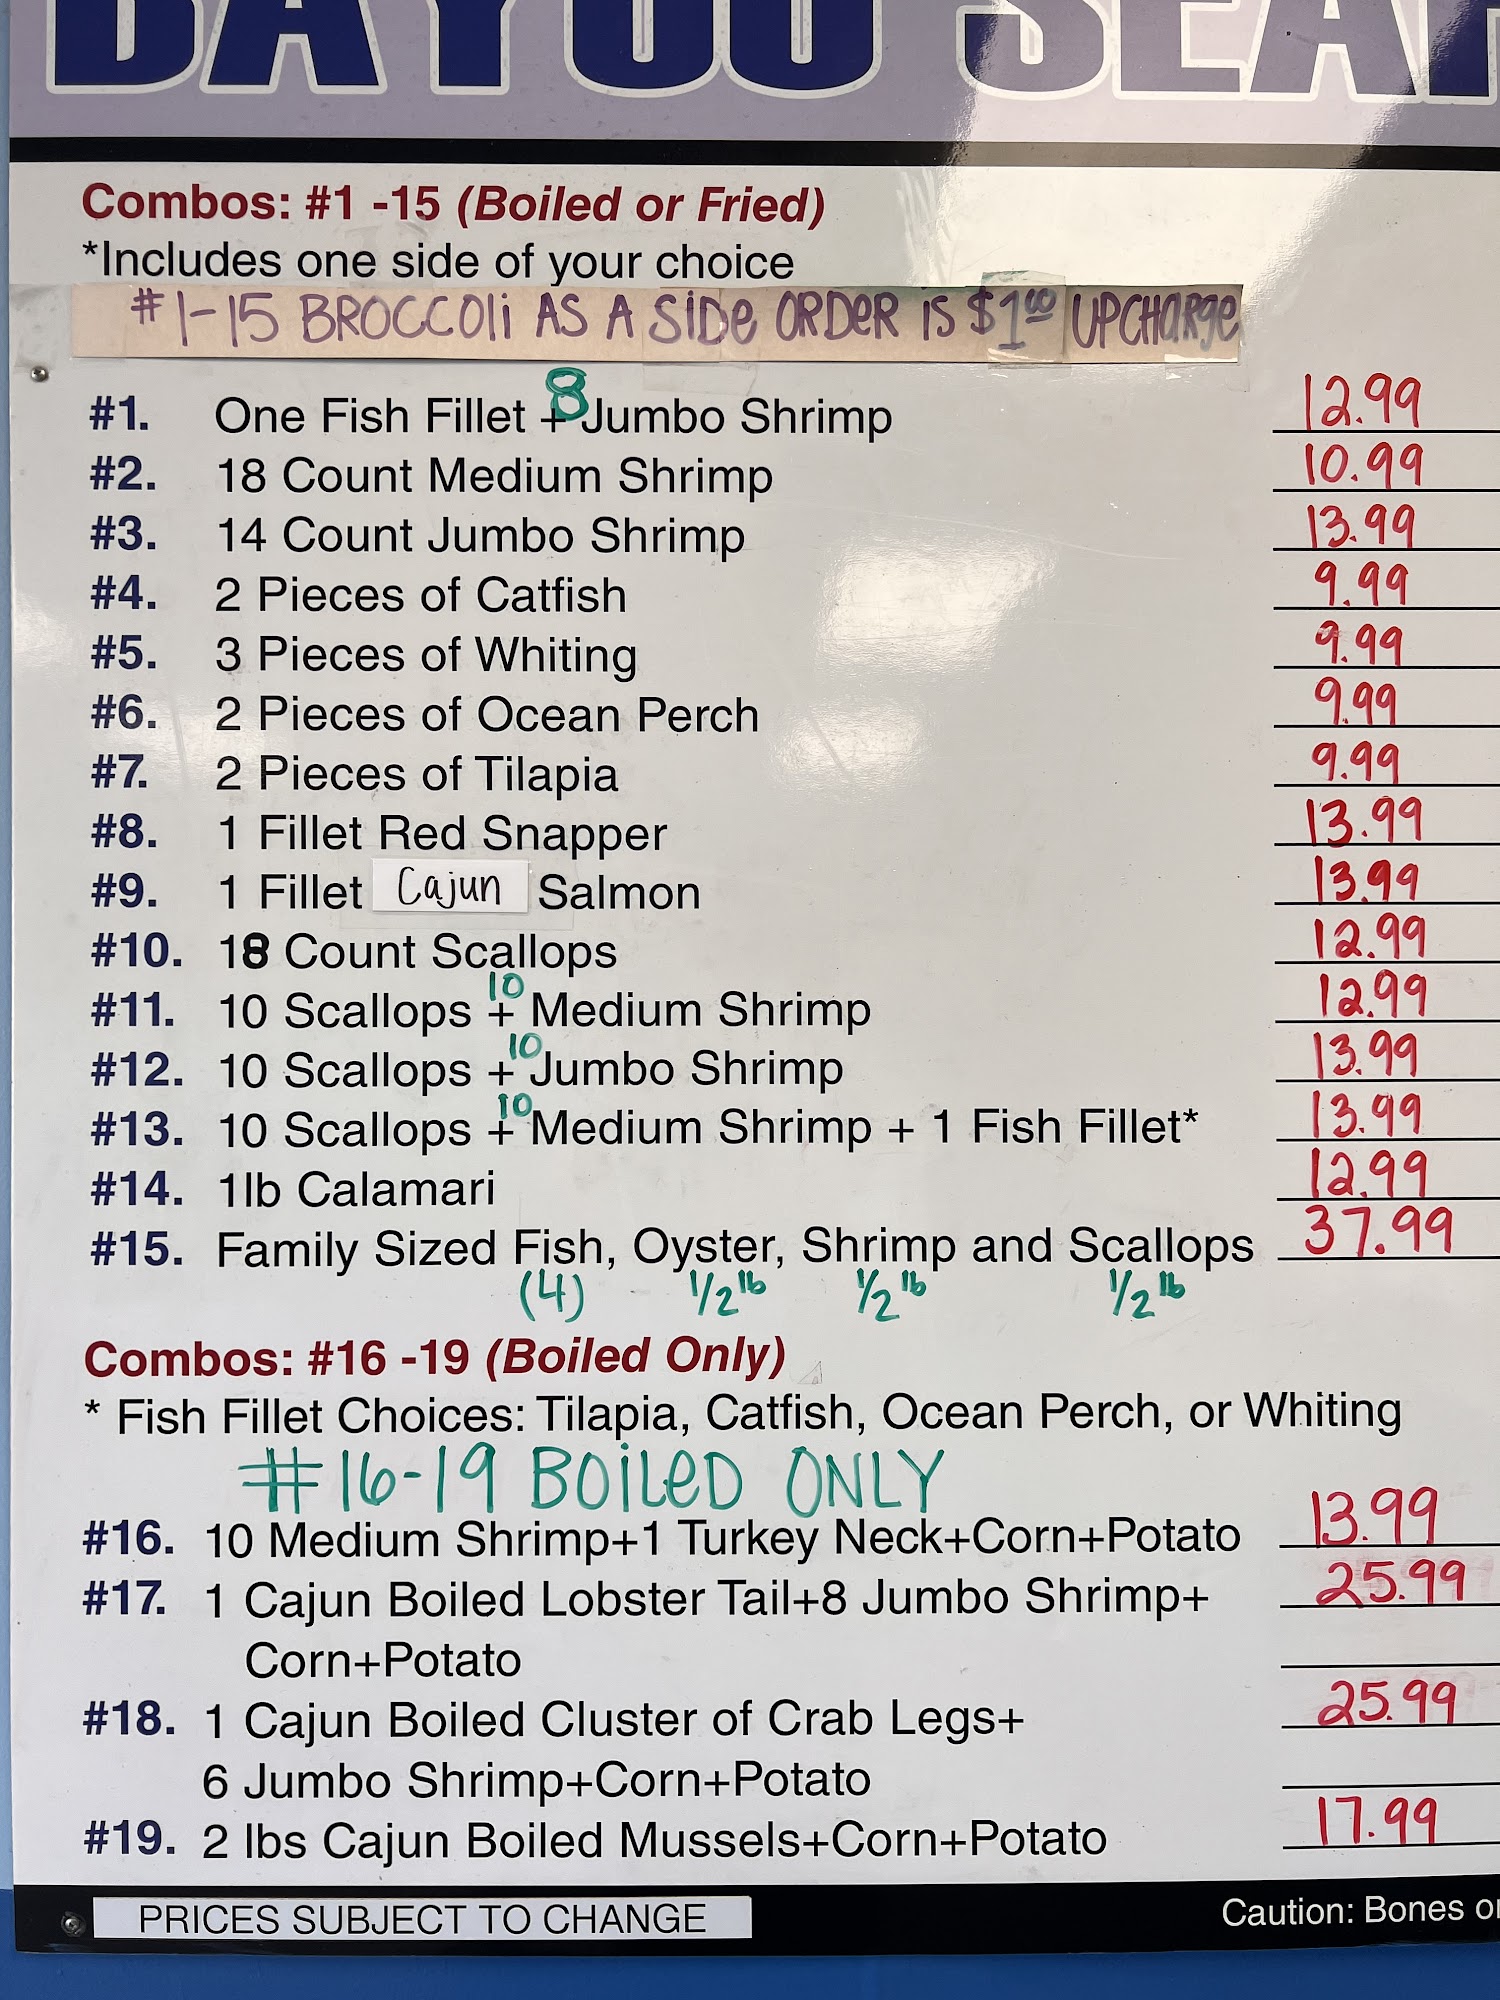 BAYOU SEAF
Combos: #1 -15 (Boiled or Fried)
*Includes one side of your choice
#1-15 BROCCOLi AS A SiDe ORDeR iS $1.00 UPCHARge
#1. One Fish Fillet + 8 Jumbo Shrimp 12.99
#2. 18 Count Medium Shrimp 10.99
#3. 14 Count Jumbo Shrimp 13.99
#4. 2 Pieces of Catfish 9.99
#5. 3 Pieces of Whiting 9.99
#6. 2 Pieces of Ocean Perch 9.99
#7. 2 Pieces of Tilapia 9.99
#8. 1 Fillet Red Snapper 13.99
#9. 1 Fillet Cajun Salmon 13.99
#10. 18 Count Scallops 12.99
#11. 10 Scallops + 10 Medium Shrimp 12.99
#12. 10 Scallops + 10 Jumbo Shrimp 13.99
#13. 10 Scallops + 10 Medium Shrimp + 1 Fish Fillet* 13.99
#14. 1lb Calamari 12.99
#15. Family Sized Fish, Oyster, Shrimp and Scallops 37.99
(4) 1/2 lb 1/2 lb 1/2 lb
Combos: #16 -19 (Boiled Only)
* Fish Fillet Choices: Tilapia, Catfish, Ocean Perch, or Whiting
#16-19 BOiLeD ONLY
#16. 10 Medium Shrimp+1 Turkey Neck+Corn+Potato 13.99
#17. 1 Cajun Boiled Lobster Tail+8 Jumbo Shrimp+ 25.99
Corn+Potato
#18. 1 Cajun Boiled Cluster of Crab Legs+ 25.99
6 Jumbo Shrimp+Corn+Potato
#19. 2 lbs Cajun Boiled Mussels+Corn+Potato 17.99
PRICES SUBJECT TO CHANGE
Caution: Bones or